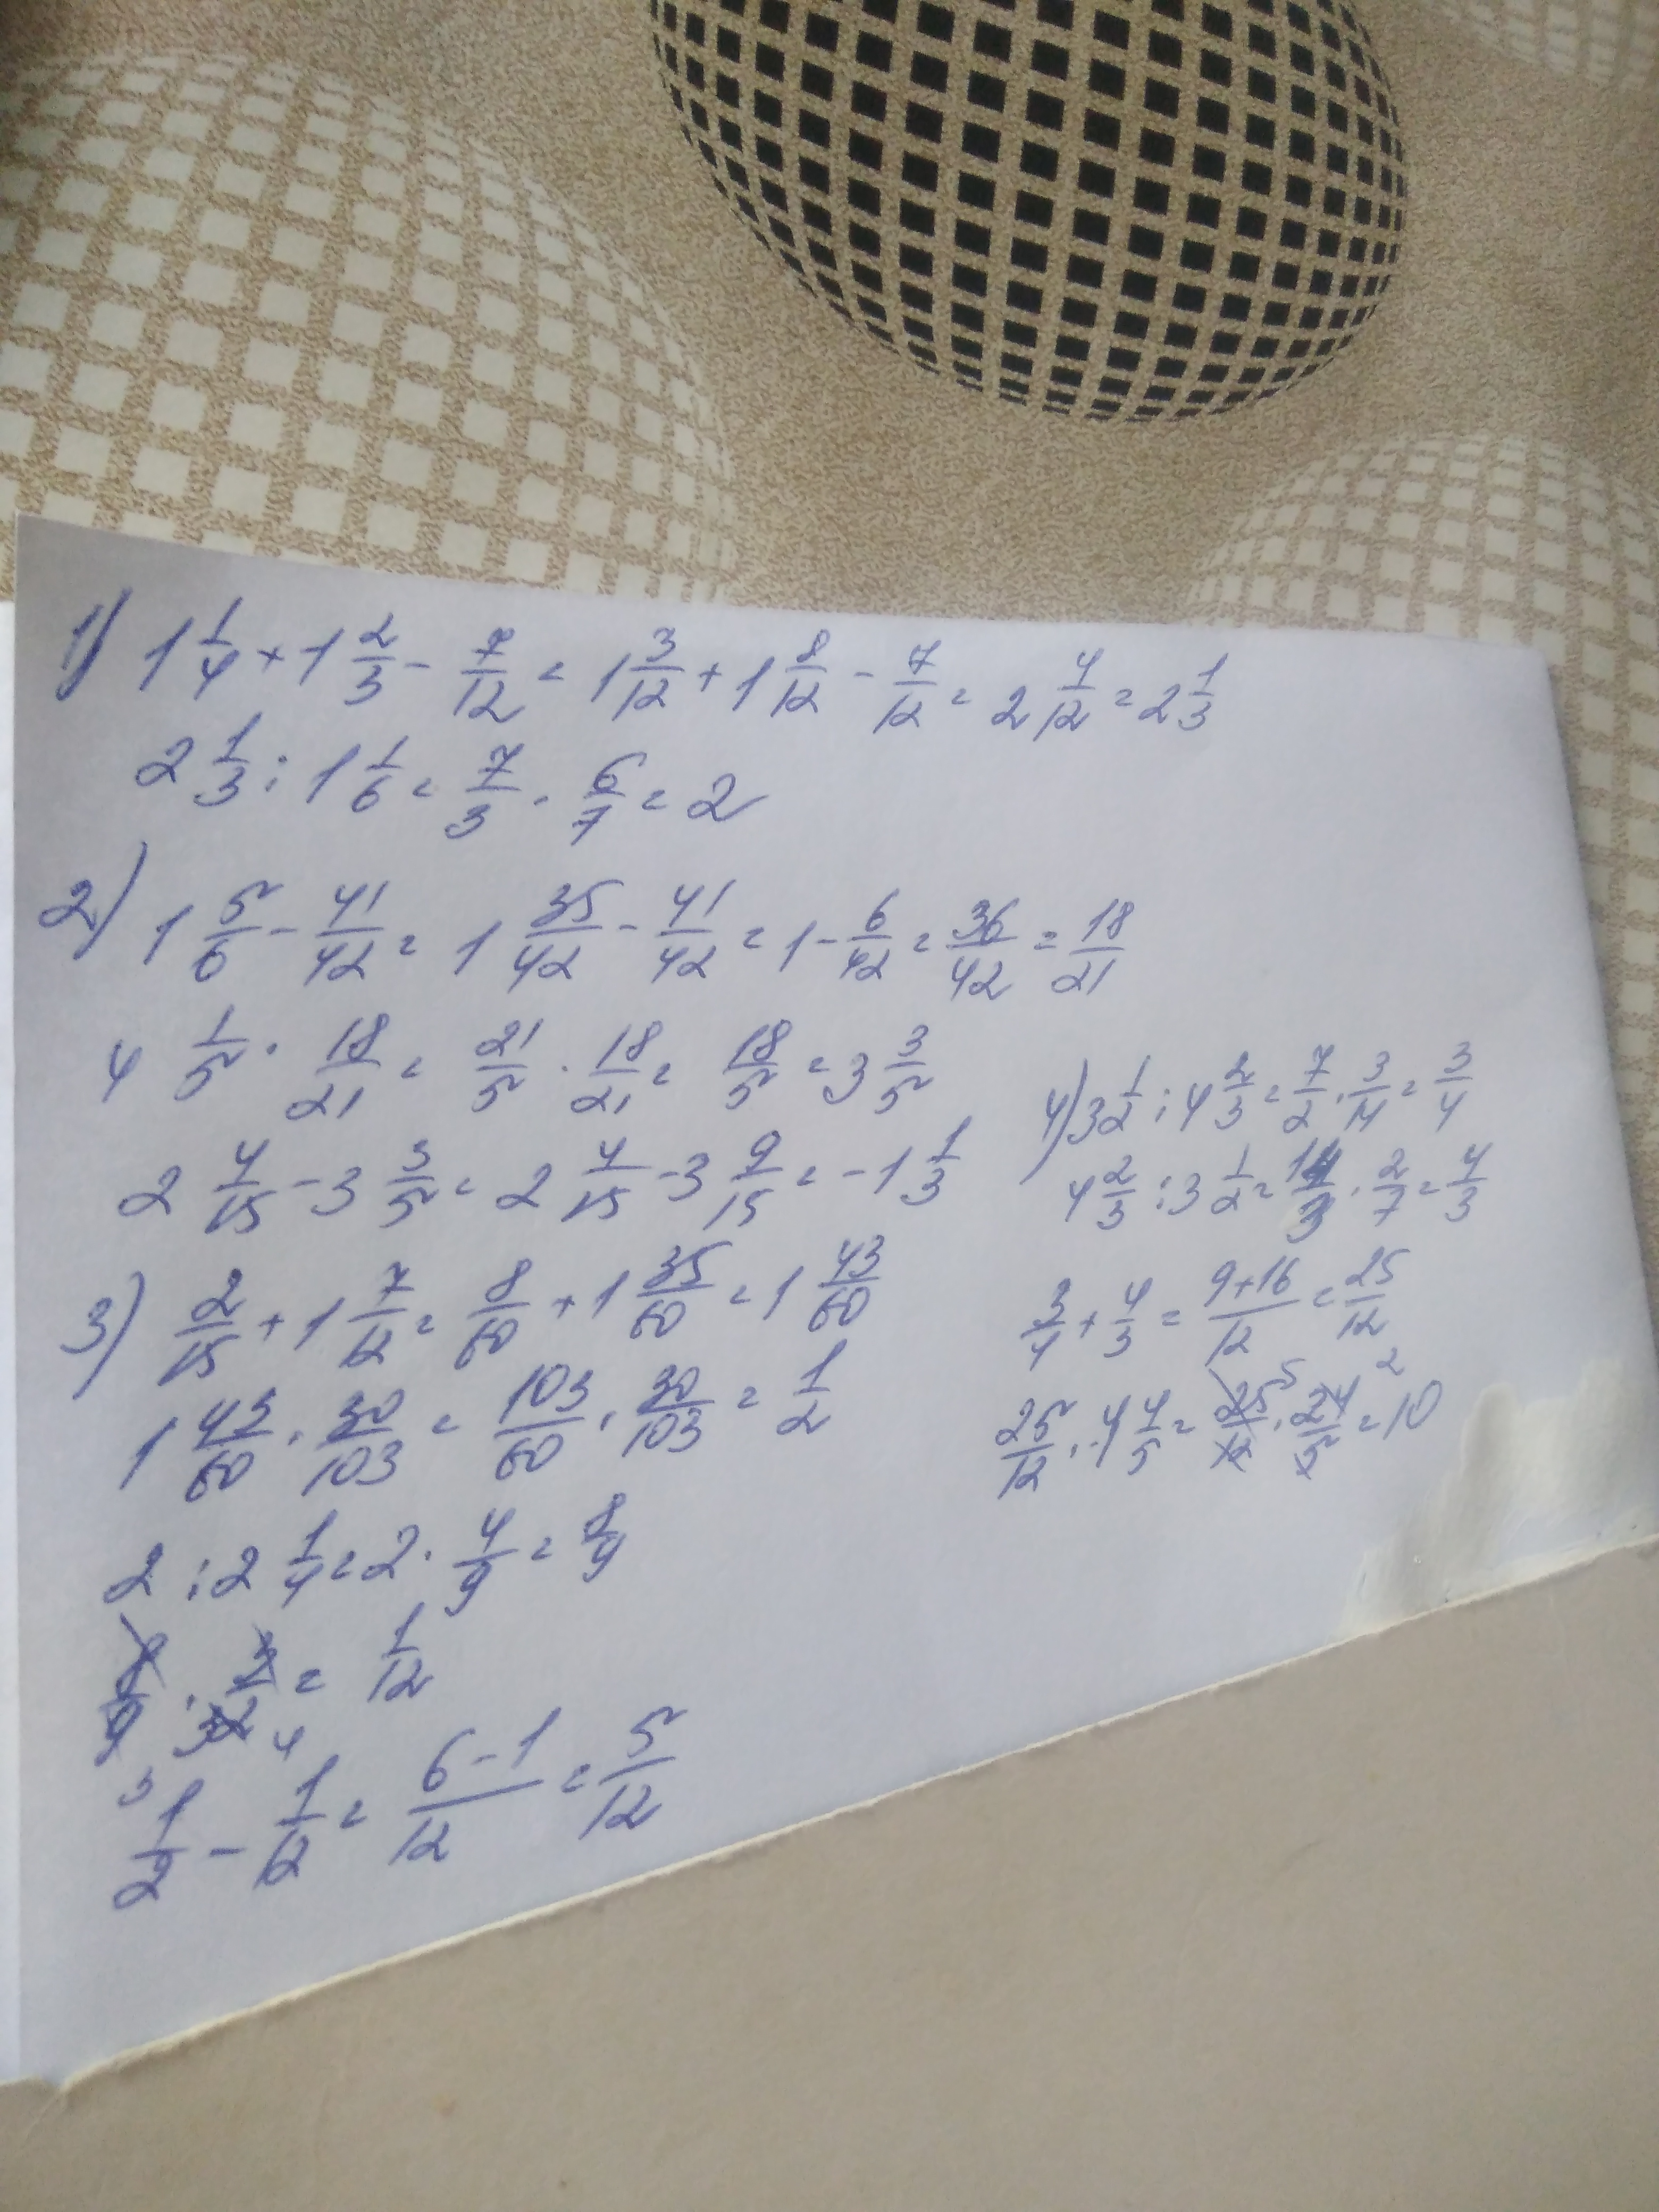 1) 1 1/4 + 1 2/3 - 7/12 = 1 3/12 + 1 8/12 - 7/12 = 2 4/12 = 2 1/3
2 1/3 : 1 1/6 = 7/3 · 6/7 = 2
2) 1 5/6 - 41/42 = 1 35/42 - 41/42 = 1 - 6/42 = 36/42 = 18/21
4 1/5 · 18/21 = 21/5 · 18/21 = 18/5 = 3 3/5
2 4/15 - 3 3/5 = 2 4/15 - 3 9/15 = -1 1/3
3) 2/15 + 1 7/12 = 8/60 + 1 35/60 = 1 43/60
1 43/60 · 30/103 = 103/60 · 30/103 = 1/2
2 : 2 1/4 = 2 · 4/9 = 8/9
8/9 · 3/32 = 1/12
3 4
1/2 - 1/12 = 6-1/12 = 5/12
4) 3 1/2 : 4 2/3 = 7/2 · 3/14 = 3/4
4 2/3 : 3 1/2 = 14/3 · 2/7 = 4/3
3/4 + 4/3 = 9+16/12 = 25/12
25/12 · 4 4/5 = 25/12 5 · 24/5 2 = 10